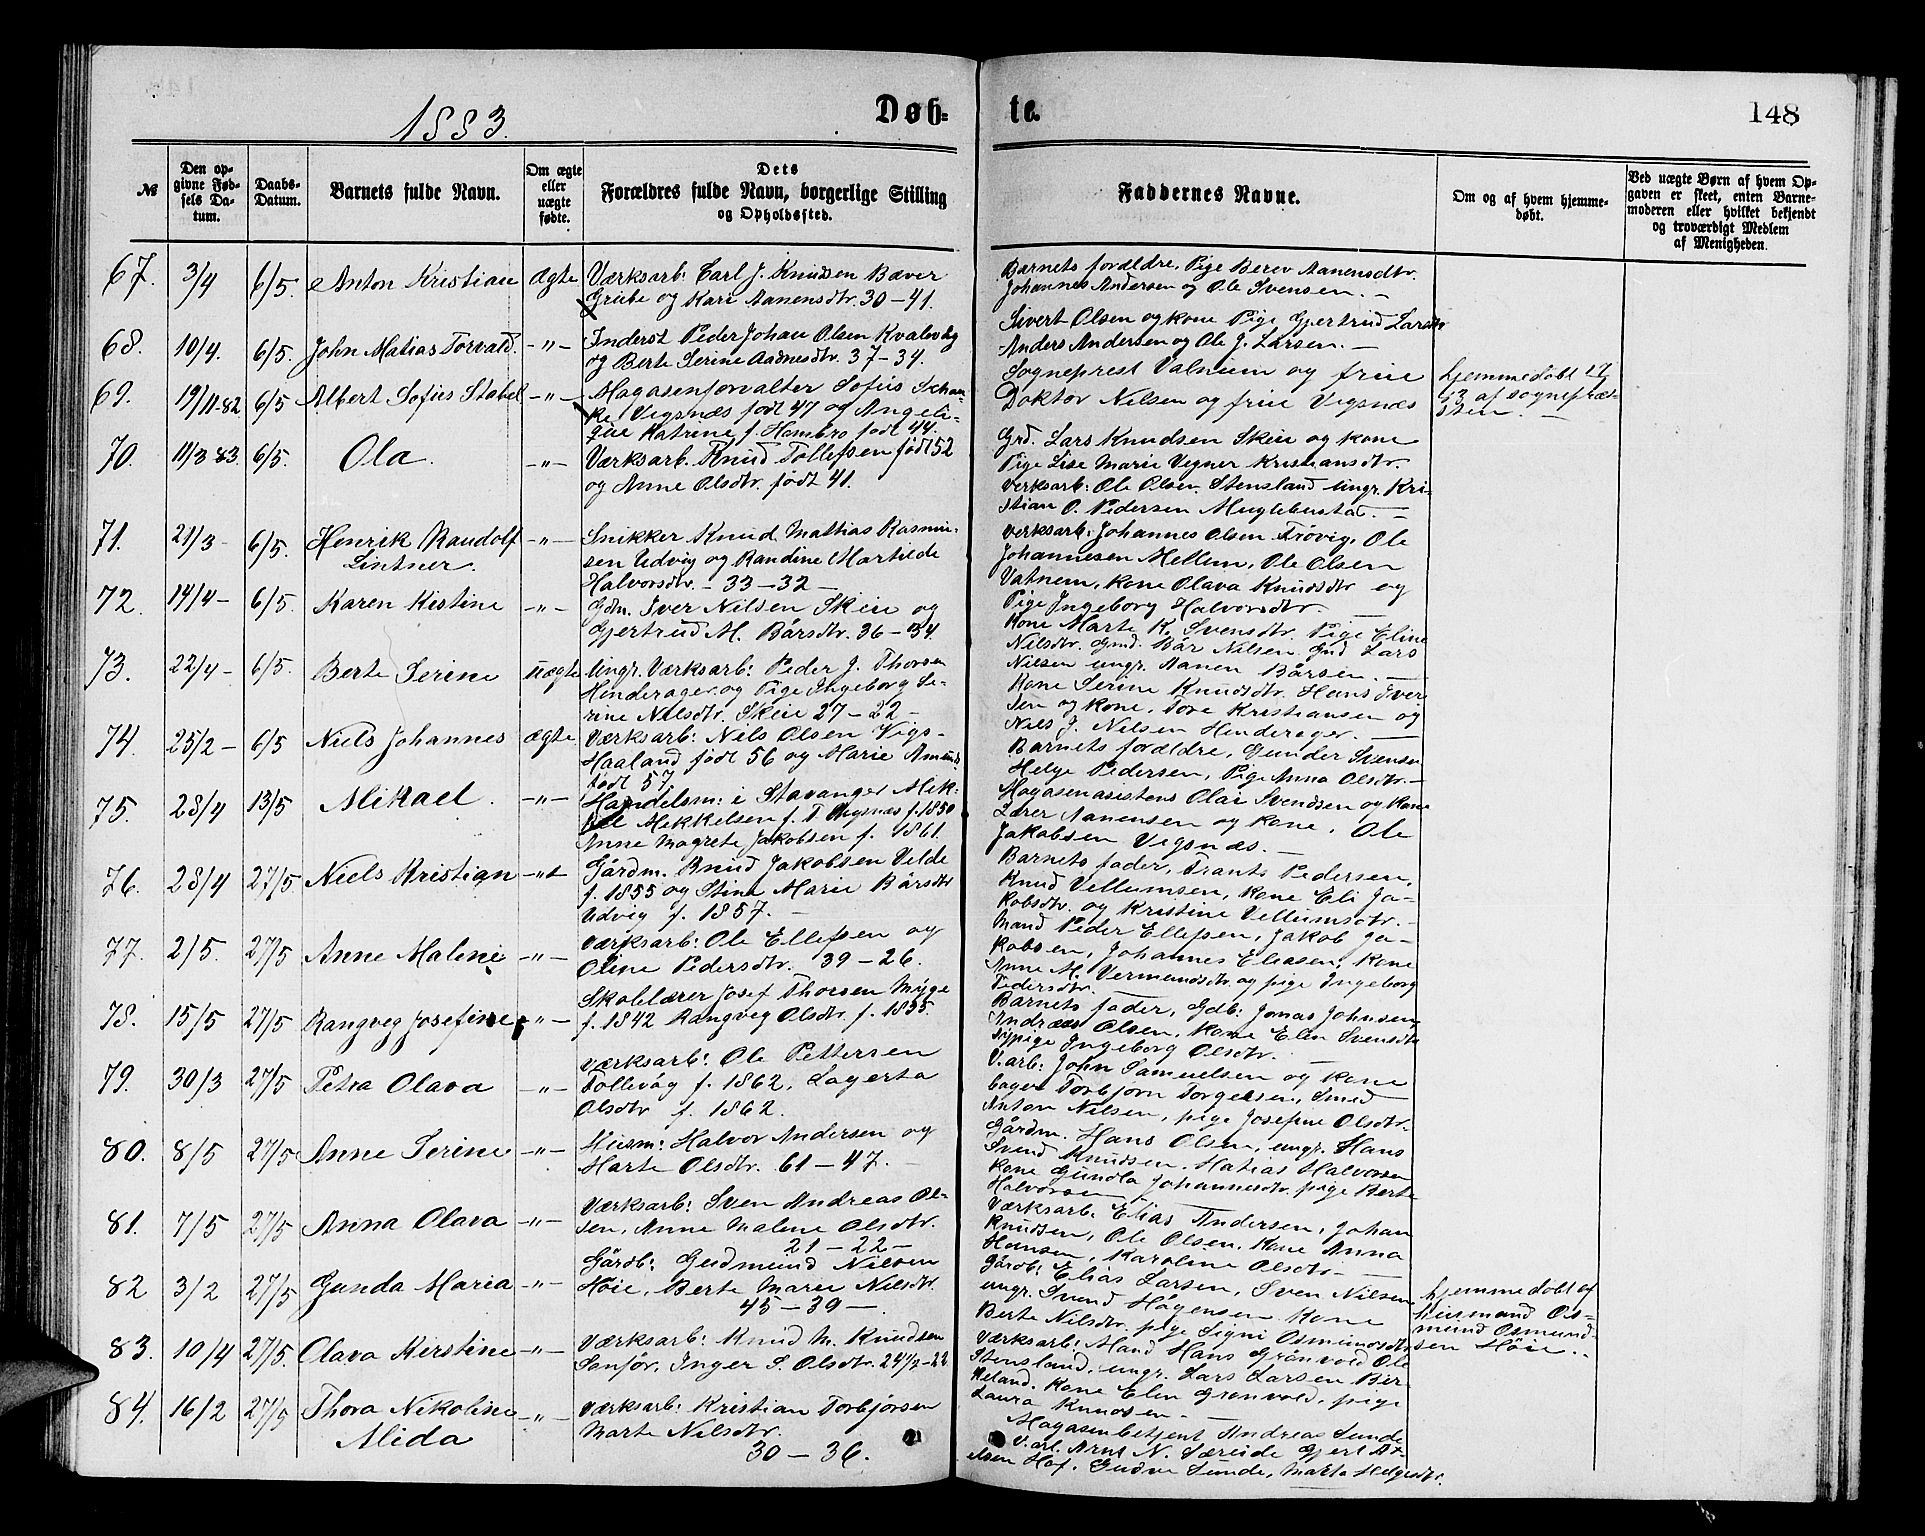 1883.
Døb-
te.
148
№
Den opgivne Fødsels Datum.
Daabs-Datum.
Barnets fulde Navn.
Om ægte eller uægte fødte.
Dets Forældres fulde Navn, borgerlige Stilling og Opholdssted.
Faddernes Navne.
Om og af hvem hjemmedøbt.
Ved uægte Børn af hvem Opgaven er skeet, enten Barnemoderen eller hvilket bekjendt og troværdigt Medlem af Menigheden.
67. 3/4 6/5. Anton Kristian Ægte Værksarb: Carl J. Knudsen Bæver
Grube og Kari Aanensdtr. 30-41.
Barnets forældre, Pige Berev Aanensdtr.
Johannes Andersen og Ole Svensen. -
68. 10/4. 6/5. John Matias Torvald. -"- Inderst Peder Johan Olsen Kvalevåg
og Berte Serine Aadnesdtr. 37-34.
Sivert Olsen og kone Pige Gjertrud Larsdtr
Anders Andersen og Ole J. Larsen. -
69. 19/11-82 6/5 Albert Sofus Stabel -"- Magasenforvalter Sofus Schan-
ke Vigsnæs født 47 og Angeli-
que Katrine f. Hambro født 44.
Sogneprest Valnum og frue
Doktor Nilsen og frue Vigsnæs
hjemmedøbt 19/
53 af sognepræ-
sten. -
70. 11/3 83. 6/5. Ola. -"- Værksarb. Knud Tollefsen født 52
og Anne Olsdtr. født 41.
Grd. Lars Knudsen Skeie og kone
Pige Lise Marie Vegner Kristiansdtr.
Verksarb: Ole Olsen Stensland ungr. Kri-
stian O. Pedersen Muglebustad. -
71. 21/3- 6/5. Henrik Raudolf
Lintner. -"- Snikker Knud Mathias Rasmus-
sen Udvig og Randine Martilde
Halvorsdtr. - 33-32 -
Verksarb: Johannes Olsen Trøvig, Ole
Johannesen Mellum, Ole Olsen
Vatnem, kone Olava Knudsdtr og
Pige Ingeborg Halvorsdtr.
72. 14/4- 6/5. Karen Kistine -"- Gdm. Iver Nilsen Skeie og
Gjertrud M. Bårsdtr. 36-34.
Kone Marte K. Svensdtr. Pige Eline
Nilsdtr. Gmd. Bår Nilsen Gmd Lars
Nilsen ungr. Aanen Bårsen. -
73. 22/4- 6/5. Berte Serine uægte Ungr. Værksarb: Peder J. Thorsen
Hinderager og Pige Ingeborg Se-
rine Nilsdtr. Skeie 27-22-
Kone Serine Knudsdtr. Hans Iver-
sen og kone, Tore Kristiansen og
Nils J. Nilsen Hinderager. -
74. 25/2- 6/5 Niels Johannes ægte Værksarb: Nils Olsen Vigs-
Haaland født 56 og Marie Amunds
født 57
Barnets forældre, Gunder Svensen
Helge Pedersen, Pige Anna Olsdtr. -
75. 28/4 13/5 Mikael. -"- Handelsm: i Stavanger Mik-
kel Mikkelsen f. T Vigsnæs f. 1850
Anne Magrete Jakobsen f. 1861.
Magasenasistens Olai Svendsen og kone
Lærer Aanensen og kone, Ole
Jakobsen Vegsnæs. -
76. 28/4 27/5 Niels Kristian -"- Gårdm. Knud Jakobsen Velde
f. 1855 og Stine Marie Bårsdtr
Udvig f. 1857. -
Barnets fader, Frants Pedersen,
Knud Vellumsen, kone Eli Ja-
kobsdtr. og Kristine Vellumsdtr. -
77. 2/5. 27/5 Anne Maline -"- Værksarb: Ole Ellefsen og
Oline Pedersdtr. 39-26.
Mand Peder Ellefsen, Jakob Ja-
kobsen, Johannes Eliasen, kone
Anne M. Vermundsdtr og pige Ingeborg
Pedersdtr.
78. 15/5 27/5 Rangveg Josefine -"- Skolelærer Josef Thorsen Myge
f. 1842 Rangveg Olsdtr. f. 1855.
Barnets fader, Gdb: Jonas Johnsen,
Andreas Olsen, kone Elen Svensdtr
sypige Ingeborg Olsdtr. -
79. 30/3 27/5 Petra Olava -"- Værksarb: Ole Pettersen
Tollevåg f. 1862, Lagerta
Olsdtr f. 1862.
V.arb: John Samuelsen og kone
bager Torbjørn Torgersen, Smed
Anton Nilsen, pige Josefine Olsdtr.
80. 8/5 27/5 Anne Serine -"- Husm: Halvor Andersen og
Marte Olsdtr. 61-47. -
Gårdm. Hans Olsen, ungr. Hans
Svend Knudsen. Matias Halvorsen
kone Gundla Johannesdtr. pige Berte
Halvorsen
81. 7/5 27/5 Anna Olava -"- Værksarb: Sven Andreas Ol-
sen, Anne Maline Olsdtr.
21-22-
Værksarb: Elias Andersen, Johan
Knudsen, Ole Olsen. Kone Anna
Hansen, Karoline Olsdtr -
82 3/2 27/5 Gunda Maria -"- Gårdb: Gudmund Nilsen
Høie, Berte Marie Nilsdtr.
45-39-.
Gårdb: Elias Larsen, Sven Nilsen
ungr. Svend Hågensen kone
Berte Nilsdtr. pige Signi Osmundsdtr
hjemmedøbt af
Husmand Os-
mund Osmund-
sen Høie..
83. 10/4 27/5. Olava Kirstine -"- Værksarb: Knud M. Knudsen
Sanfør, Inger S. Olsdtr. 24 1/2-22
Værksarb: Mand Hans Grönvold Ole
Stensland, ungr. Lars Larsen Bir-
keland. Kone Elin Grønvold, pige
Laura Knudsen. -
84. 16/2 27/5 Thora Nikoline
Alida -"- Værksarb: Kristian Torbjørsen
Marte Nilsdtr.
30-36.
Magasenbetjent Andreas Lunde
V.arb. Arnt N. Særeide Gjert At-
elsen Hof. Gudve Lunde, Marta Helgesdtr.